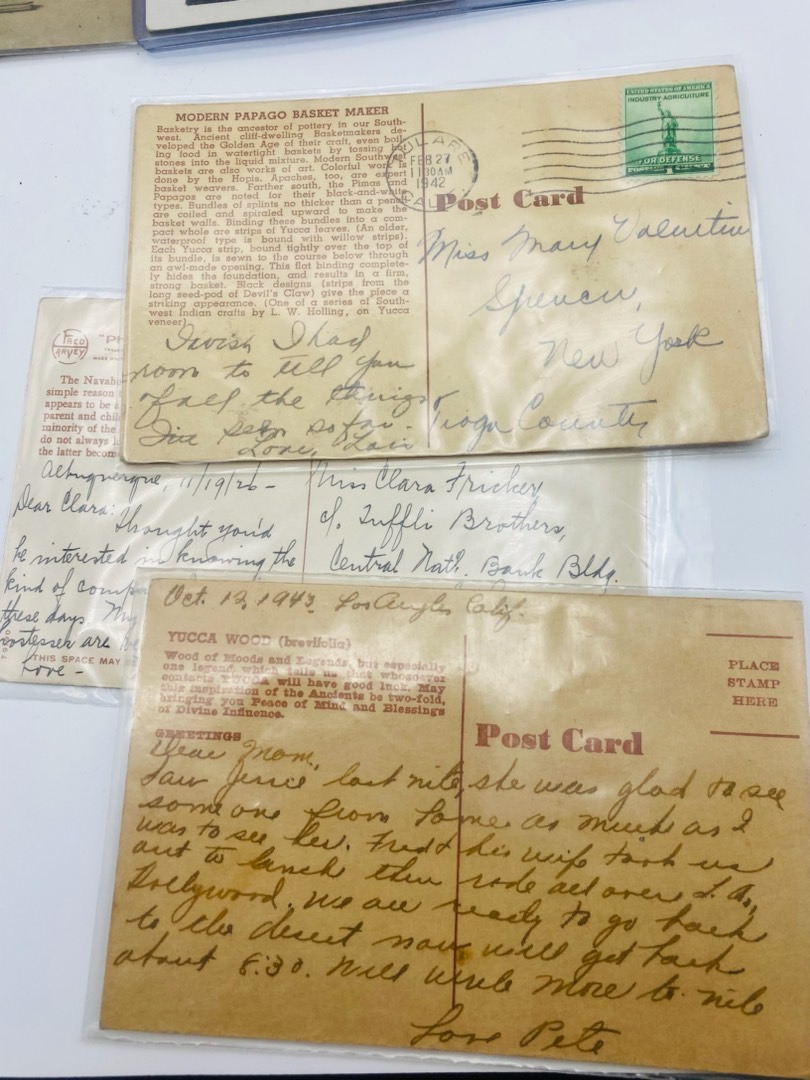 MODERN PAPAGO BASKET MAKER
Basketry is the ancestor of pottery in our South-
west. Ancient cliff-dwelling Basketmakers de-
veloped the Golden Age of their craft, even boil-
ing food in watertight baskets by tossing hot
stones into the liquid mixture. Modern Southwest
baskets are also works of art. Colorful work is
done by the Hopis. Apaches, too, are expert
basket weavers. Farther south, the Pimas and
Papagos are noted for their black-and-white
types. Bundles of splints no thicker than a pencil
are coiled and spiraled upward to make the
basket walls. Binding these bundles into a com-
pact whole are strips of Yucca leaves. (An older,
waterproof type is bound with willow strips).
Each Yucca strip, bound tightly over the top of
its bundle, is sewn to the course below through
an awl-made opening. This flat binding complete-
ly hides the foundation, and results in a firm,
strong basket. Black designs (strips from the
long seed-pod of Devil's Claw) give the piece a
striking appearance. (One of a series of South-
west Indian crafts by L. W. Holling, on Yucca
veneer)
I wish I had
room to tell you
of all the things
I've seen so far.
Love, Lois
TULARE
FEB 27
11 30 AM
1942
CALIF.
UNITED STATES OF AMERICA
INDUSTRY AGRICULTURE
FOR DEFENSE
1
Post Card
Miss Mary Valentine
Spencer,
New York
Tioga County
FRED HARVEY
"PH
The Navaho
simple reason
appears to be a
parent and chil
minority of the
do not always l
the latter becom
Albuquerque, 11/19/26 -
Dear Clara: Thought you'd
be interested in knowing the
kind of comp
these days. My
hostesses are
THIS SPACE MAY
Love -
Miss Clara Fricker,
c/o Tuffli Brothers,
Central Nat'l. Bank Bldg.
Oct. 12, 1943 Los Angles Calif.
YUCCA WOOD (brevifolia)
Wood of Moods and Legends, but especially
one legend which tells us that whosoever
contacts YUCCA will have good luck. May
this inspiration of the Ancients be two-fold,
bringing you Peace of Mind and Blessings
of Divine Influence.
GREETINGS
PLACE
STAMP
HERE
Post Card
Dear Mom,
Saw Jerrie last nite, she was glad to see
some one from home as much as I
was to see her. Fred & his wife took us
out to lunch then rode all over L.A.,
Hollywood. We are ready to go back
to the desert now will get back
about 8:30. Will write more to-nite
Love Pete